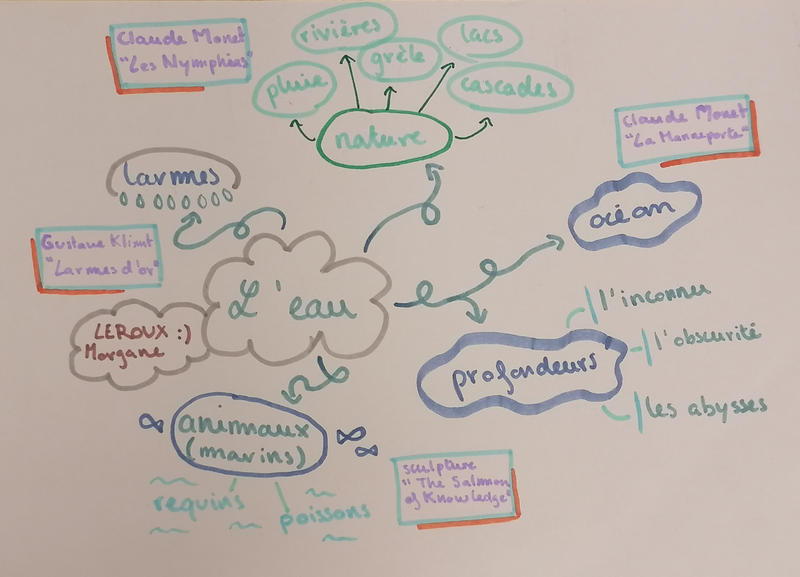 Claude Monet
"Les Nymphéas"
rivières
lacs
grêle
pluie
cascades
nature
Claude Monet
"La Manneporte"
larmes
océan
Gustave Klimt
"Larmes d'or"
L'eau
l'inconnu
LEROUX :)
Morgane
l'obscurité
profondeurs
les abysses
animaux
(marins)
sculpture
"The Salmon
of Knowledge"
requins
poissons